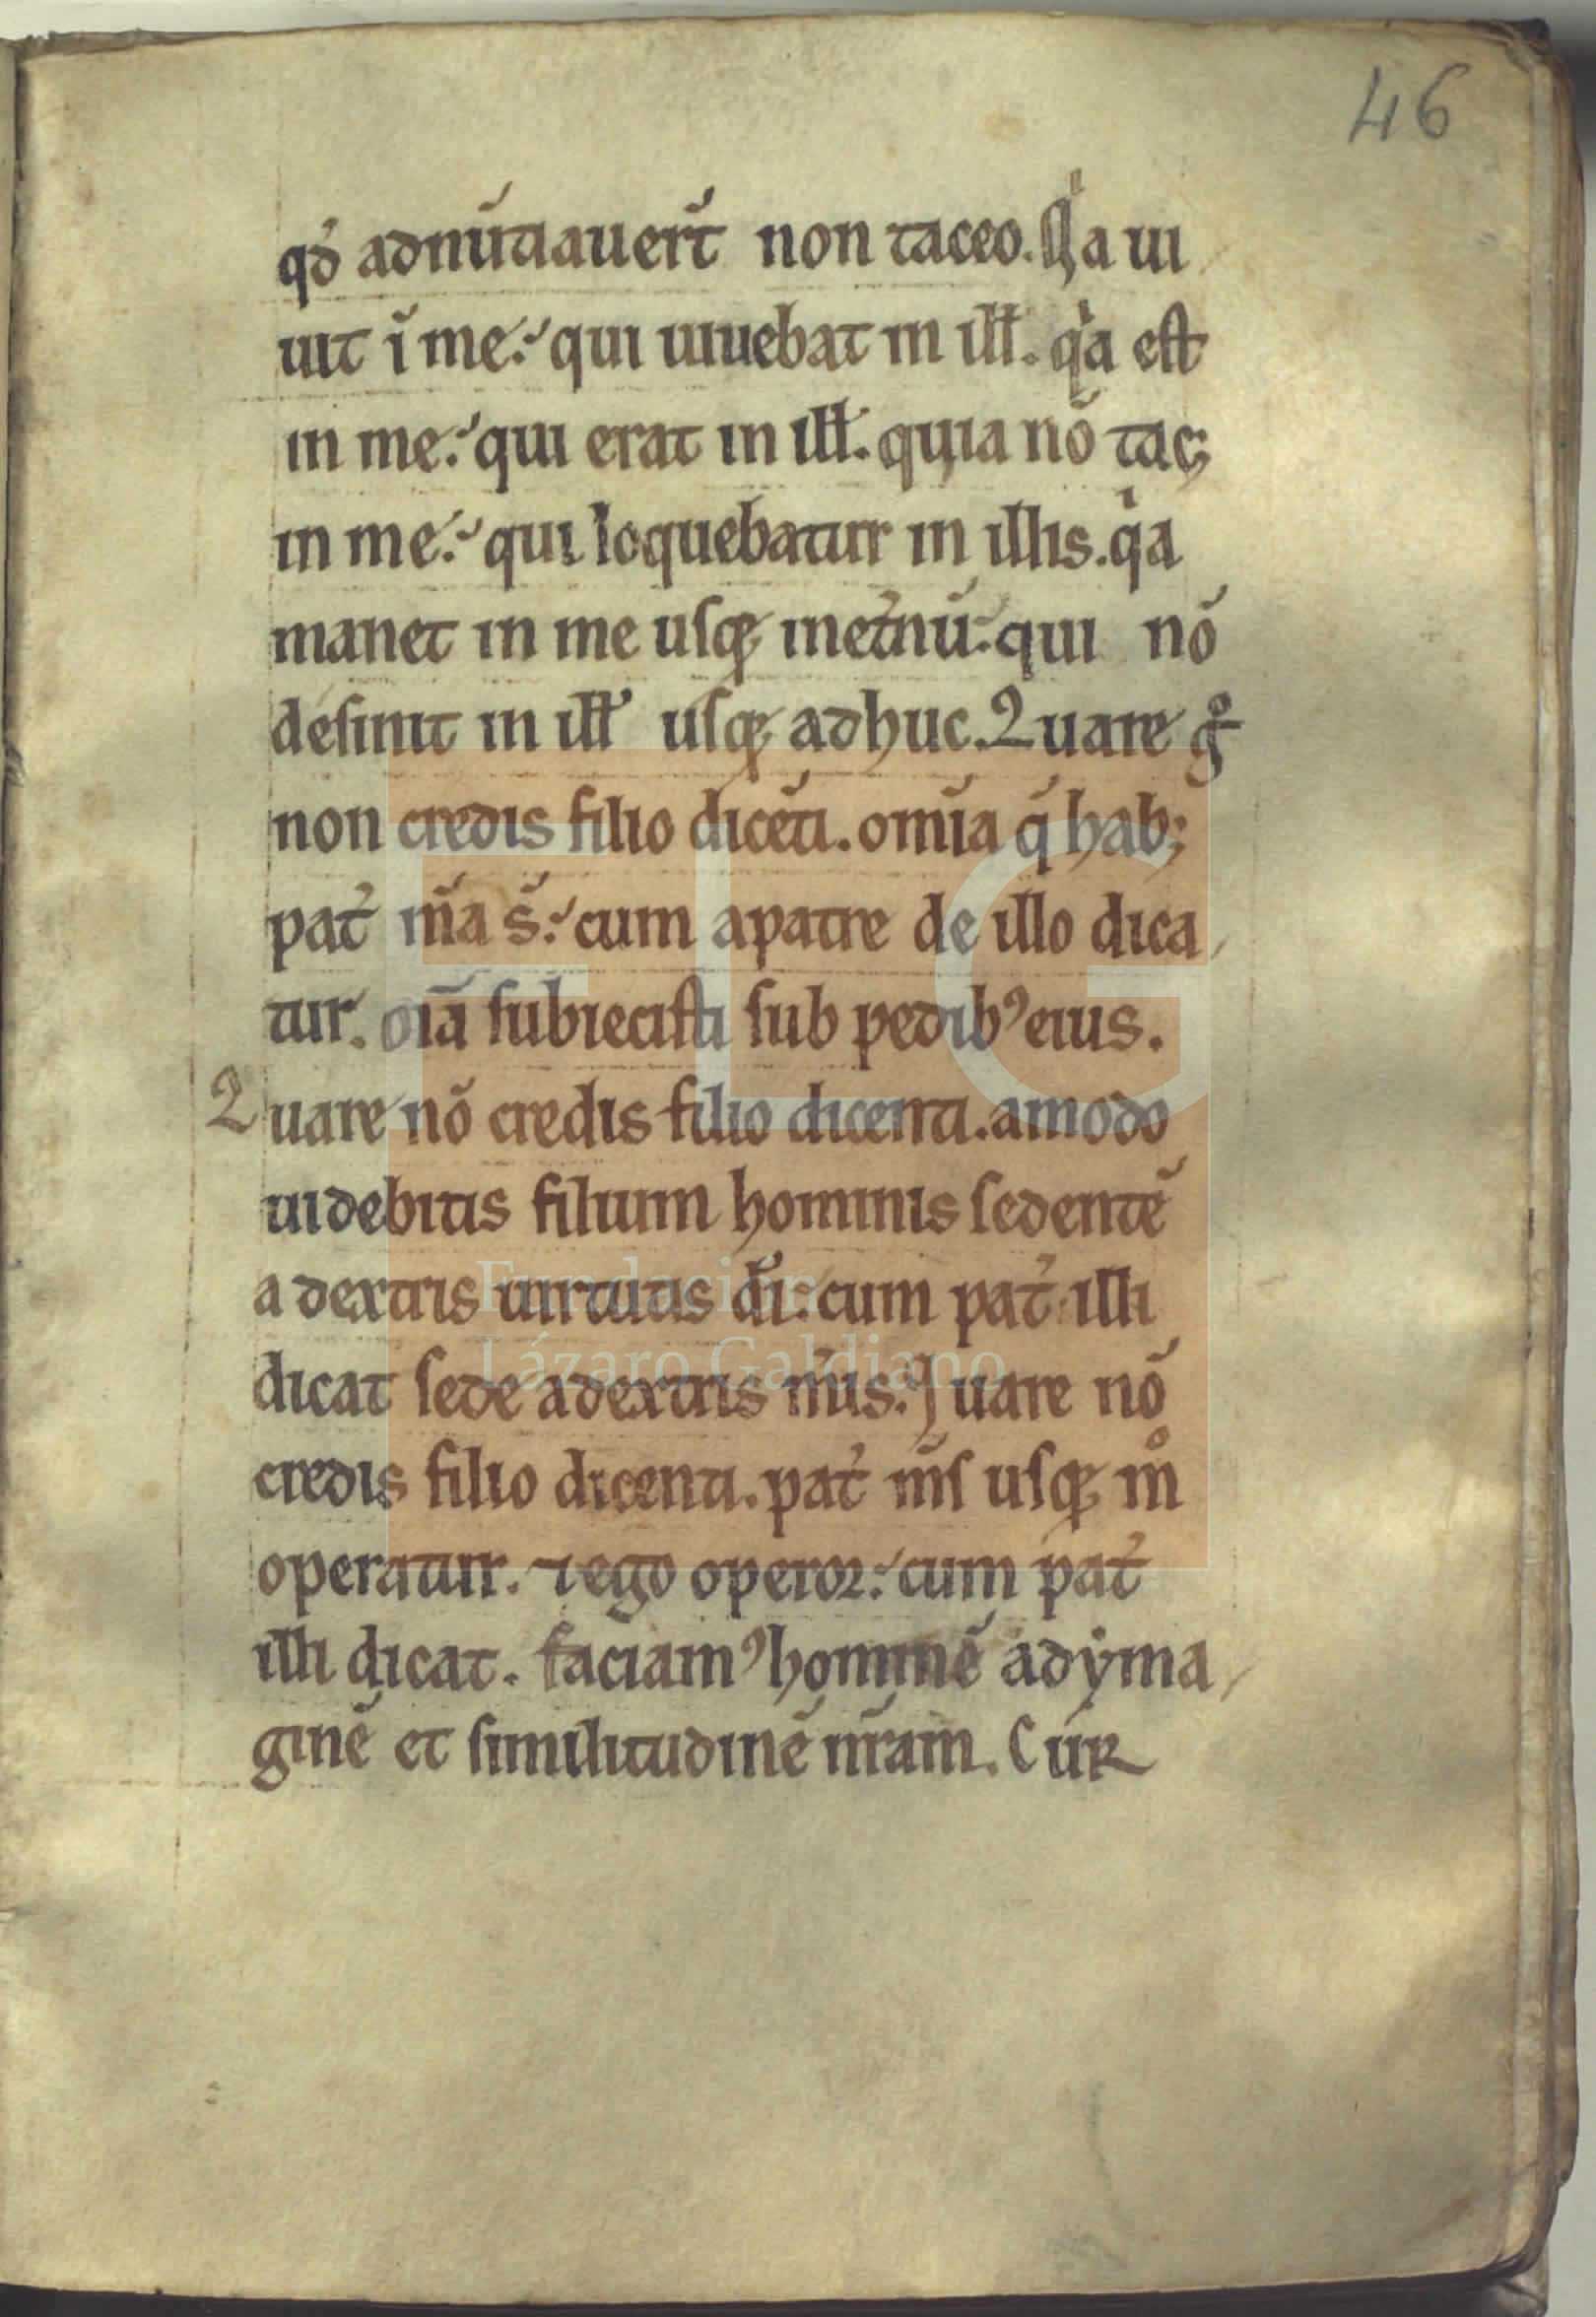 46
qd̾ adnu᷑tiauer̃t non taceo. Q̾a ui
uit ĩ me: qui uiuebat in ill̃. qͥa est
in me: qui erat in ill̃. quia nõ tac;
in me: qui loquebatur in illis. qͥa
manet in me usq; inet̾nũ: qui nõ
desinit in ill̃ usq; adhuc. Quare gͦ
non credis filio dicẽti. om̃ia q̃ hab;
pat̾ m̃a s̃: cum apatre de illo dica
tur. oĩa subiecisti sub pedibꝰ eius.
Quare nõ credis filio dicenti. amodo
uidebitis filium hominis sedentẽ
a dextris uirtutis dĩ: cum pat̾ illi
dicat sede adextris m̃is. Quare nõ
credis filio dicenti. pat̾ m̃s usq; mͦ
operatur. ⁊ ego operor: cum pat̾
illi dicat. faciamꝰ hominẽ adẏma
ginẽ et similitudinẽ nr̃am. Cur
FLG
Fundación
Lázaro Galdiano